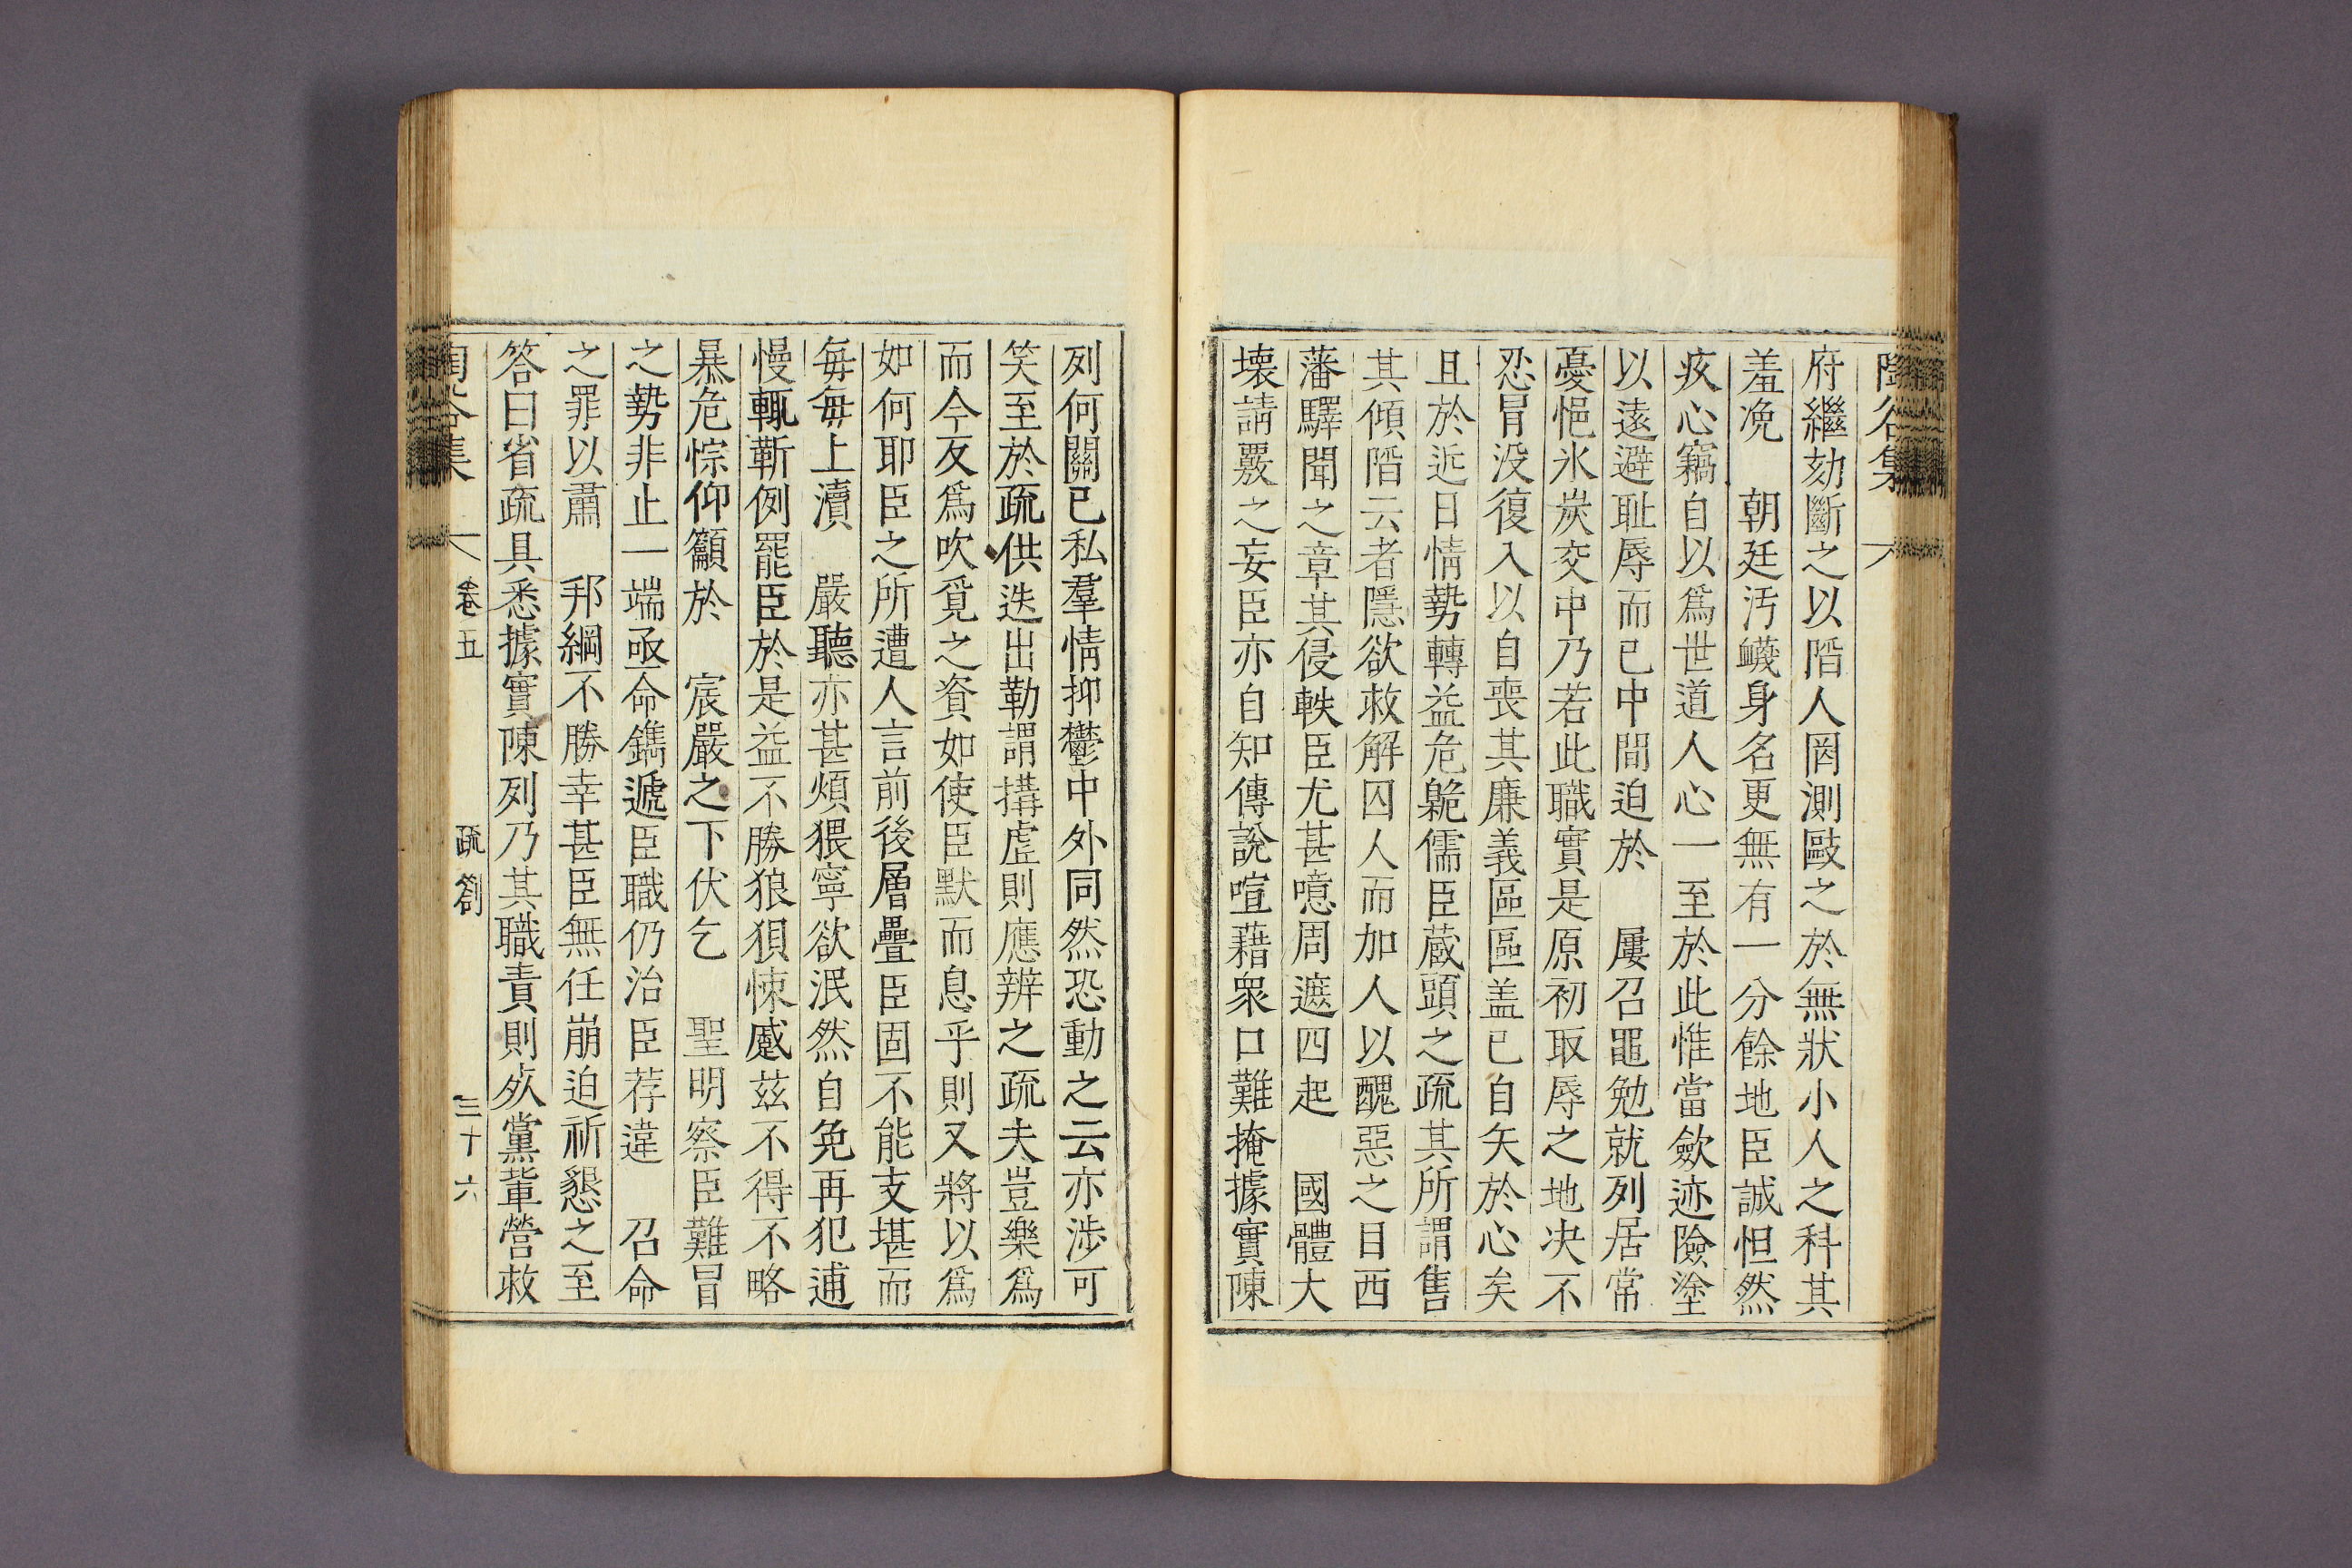 府繼劾斷之以陷人罔測敺之於無狀小人之科其
羞浼　朝廷汚衊身名更無有一分餘地臣誠怛然
疚心竊自以爲世道人心一至於此惟當斂迹險塗
以逺避耻辱而已中間迫於　屢召黽勉就列居常
憂悒氷炭交中乃若此職實是原初取辱之地决不
忍冒没復入以自喪其廉義區區盖已自矢於心矣
且於近日情勢轉益危臲儒臣蔵頭之疏其所謂售
其傾陷云者隱欲救解囚人而加人以醜惡之目西
藩驛聞之章其侵軼臣尤甚噫周遮四起　國體大
壊請覈之妄臣亦自知傳說喧藉衆口難掩據實陳
列何關已私羣情抑鬱中外同然恐動之云亦涉可
笑至於疏供迭出勒謂搆虗則應辨之疏夫豈樂爲
而今反爲吹覓之資如使臣默而息乎則又將以爲
如何耶臣之所遭人言前後層疊臣固不能支堪而
每每上瀆　嚴聽亦甚煩猥寧欲泯然自免再犯逋
慢輒靳例罷臣於是益不勝狼狽悚蹙玆不得不略
暴危悰仰籲於　宸嚴之下伏乞　聖明察臣難冒
之勢非止一端亟命鐫遞臣職仍治臣荐違　召命
之罪以肅　邦綱不勝幸甚臣無任崩迫祈懇之至
答曰省疏具悉據實陳列乃其職責則死黨輩營救
卷五　疏劄　三十六